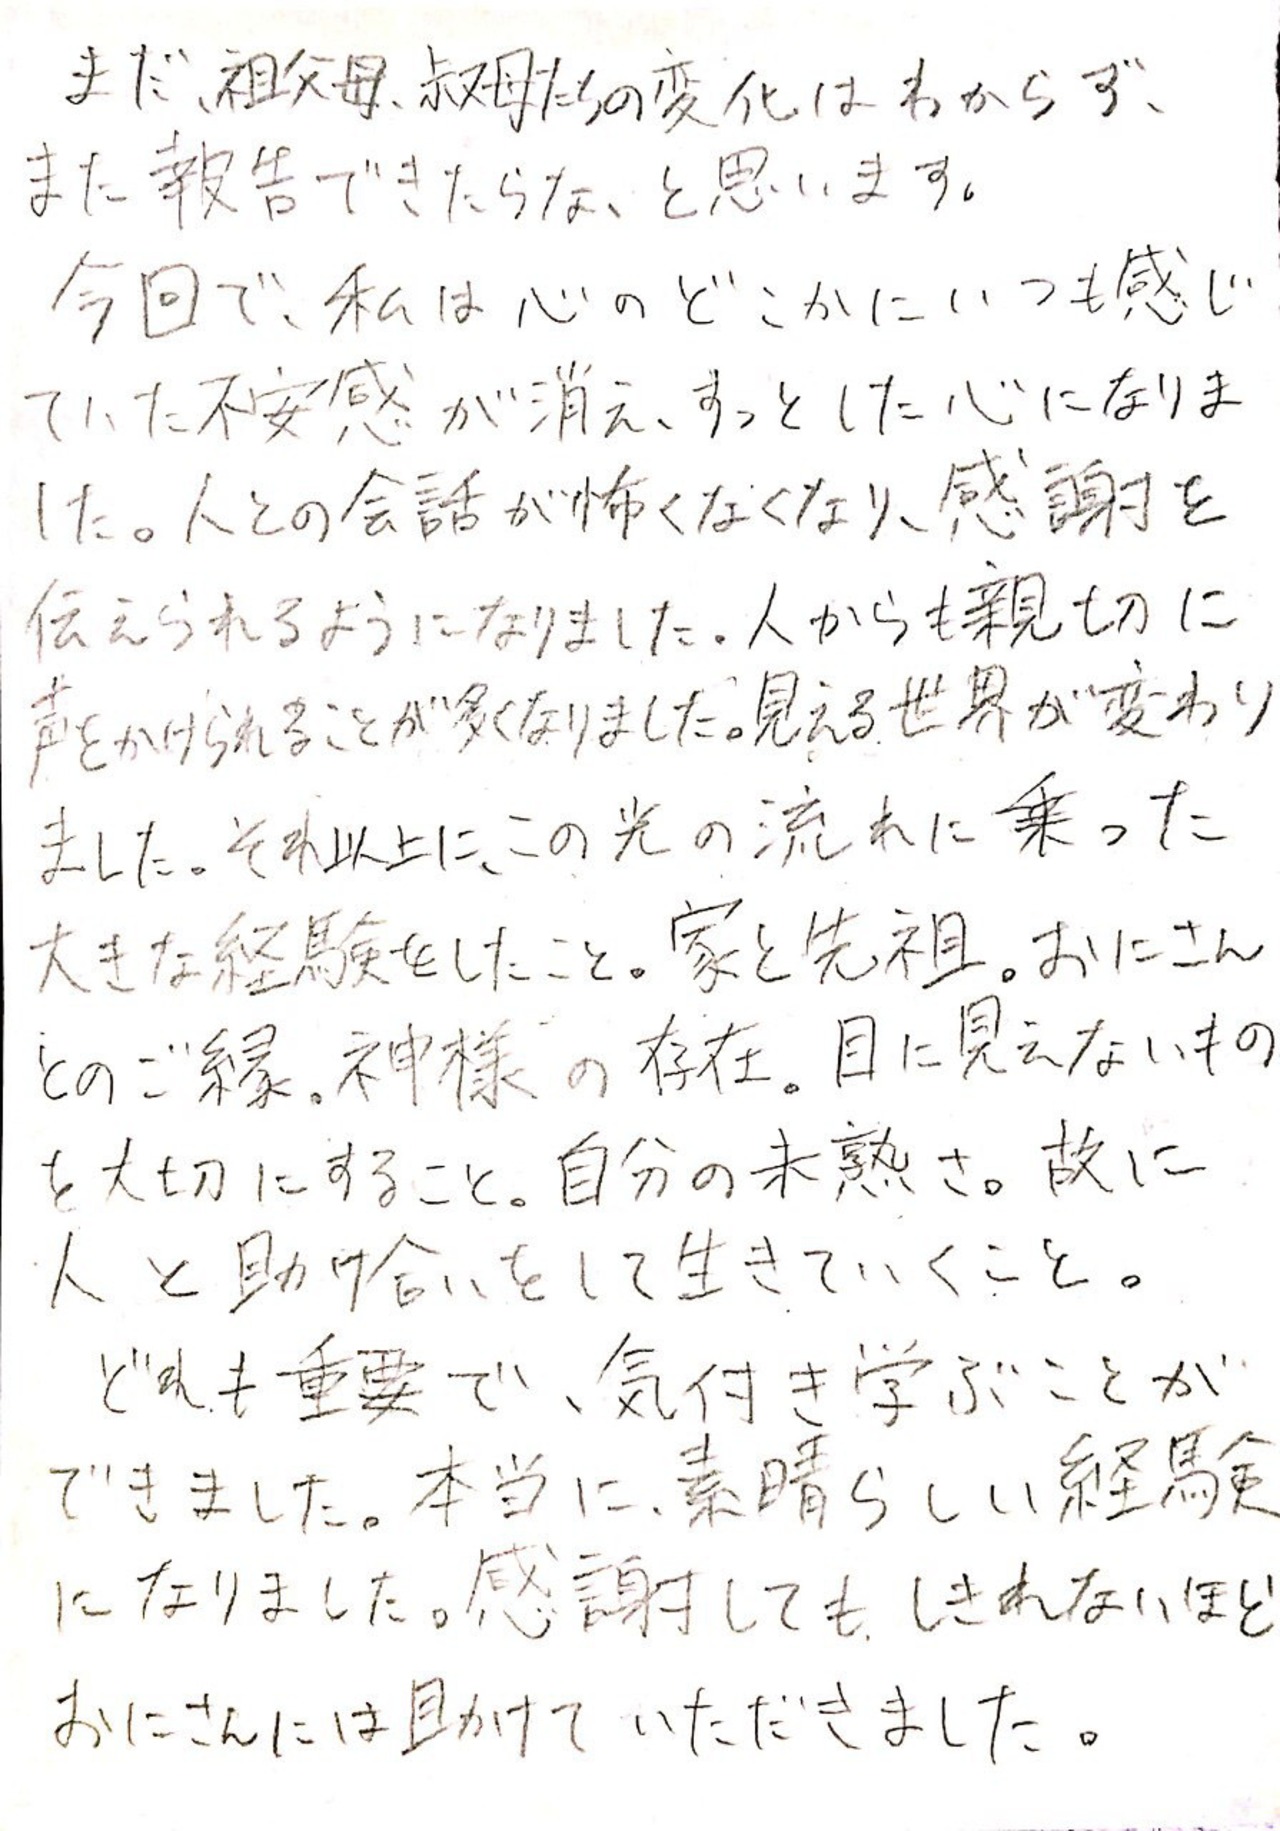 まだ、祖父母、叔母たちの変化はわからず、
また報告できたらな、と思います。
今回で、私は心のどこかにいつも感じ
ていた不安感が消え、すっとした心になりま
した。人との会話が怖くなくなり、感謝を
伝えられるようになりました。人からも親切に
声をかけられることが多くなりました。見える世界が変わり
ました。それ以上に、この光の流れに乗った
大きな経験をしたこと。家と先祖。おにさん
とのご縁。神様の存在。目に見えないもの
を大切にすること。自分の未熟さ。故に
人と助け合いをして生きていくこと。
どれも重要で、気付き学ぶことが
できました。本当に、素晴らしい経験
になりました。感謝してもしきれないほど
おにさんには助けていただきました。